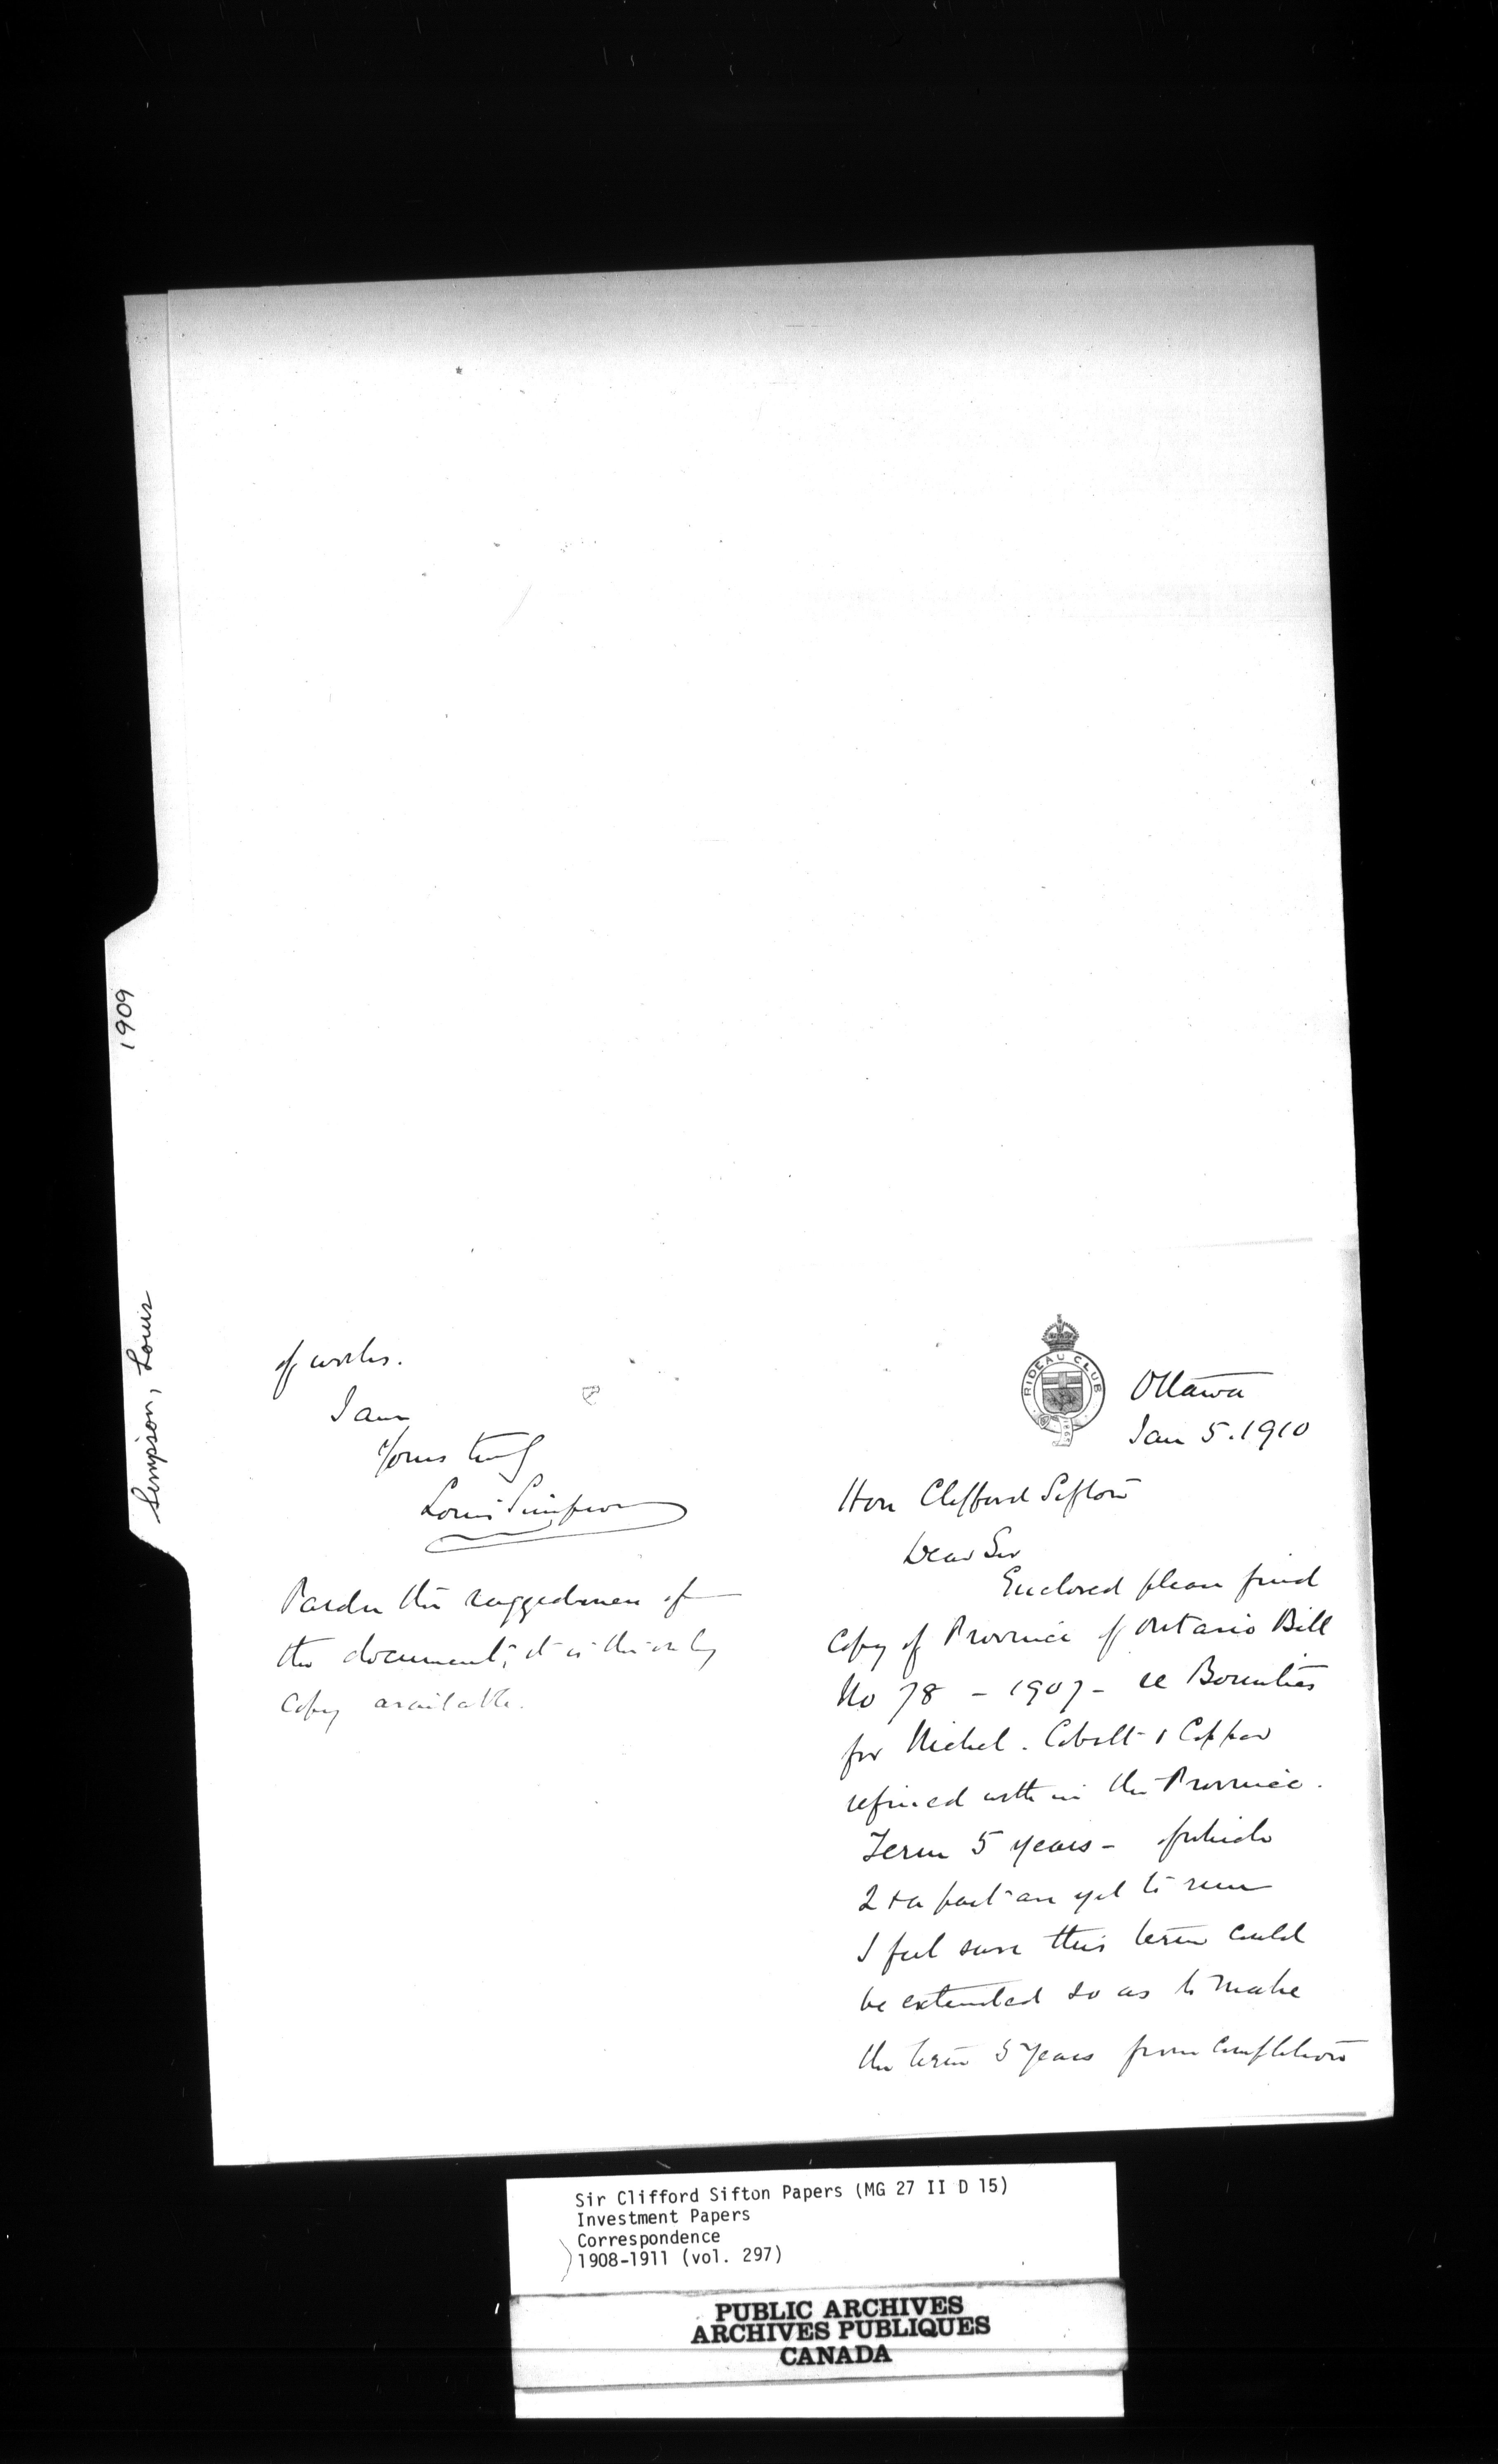 1909
Simpson, Louis
RIDEAU CLUB
1865
Ottawa
Jan 5. 1910
Hon Clifford Sifton
Dear Sir
Enclosed please find
Copy of Province of Ontario Bill
No 78 - 1907 - re Bounties
for Nickel. Cobalt & Copper
refined within the Province.
Term 5 years - of which
2 & a part are yet to run
I feel sure this term could
be extended so as to make
the term 5 years from completion
of works.
I am
Yours truly
Louis Simpson
Pardon the raggedness of
the document; it is the only
Copy available.
Sir Clifford Sifton Papers (MG 27 II D 15)
Investment Papers
Correspondence
1908-1911 (vol. 297)
PUBLIC ARCHIVES
ARCHIVES PUBLIQUES
CANADA